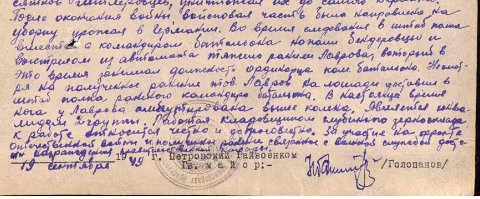 После окончания войны войсковая часть была направлена на
уборку урожая в Германии. Во время следования в штаб полка
вместе с командиром батальона напали бендеровцы и
выстрелом из автомата тяжело ранили Лаврова, который в
это время занимал должность ординарца ком. батальона. Несмот-
ря на полученное ранение тов. Лавров на лошади доставил в
штаб полка раненого командира батальона. В настоящее время
нога у Лаврова ампутирована выше колена. Является инва-
лидом 2 группы. Работая кладовщиком глубинного зерносклада
к работе относится честно и добросовестно. За участие на фронте
отечественной войны и полученные ранения связанные с
награждения правительственной награды.
19 сентября 1949 г. Петровский Райвоенком
Гв. майор:- /Голопанов/